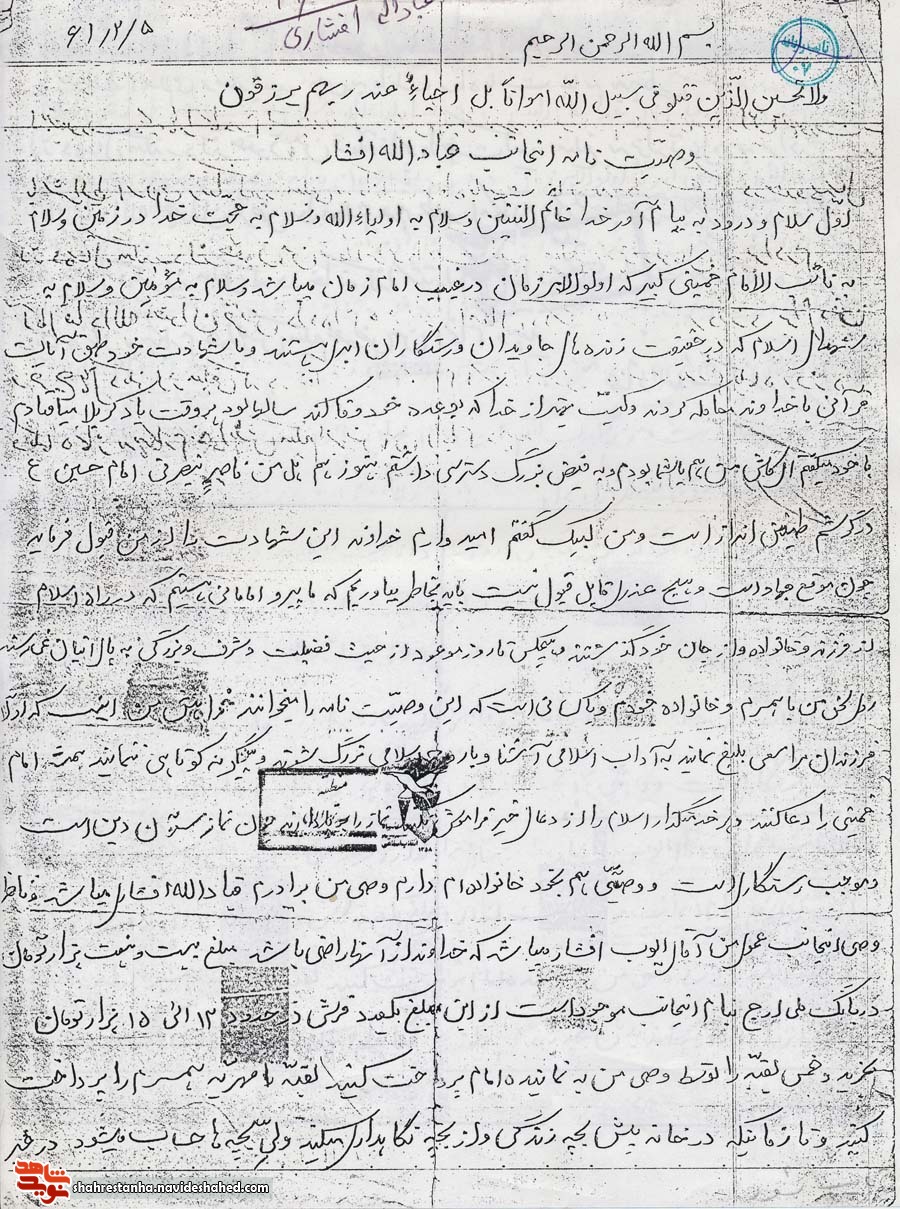 عبادالله افشاری
۶۱/۲/۵
بسم الله الرحمن الرحیم
ولا تحسبن الّذین قتلو فی سبیل اللّه امواتاً بل احیاءٌ عند ربهم یرزقون
وصیّت نامه اینجانب عبادالله افشار
اول سلام و درود به پیام آور خدا خاتم النبین وسلام به اولیاءالله وسلام به حجت خدا در زمین وسلام
به نائب الأمام خمینی کبیر که اولوالامر زمان در غیبت امام زمان میباشد وسلام به مؤمنین وسلام به
شهدای اسلام که در حقیقت زنده های جاویدان ورستگاران ابدی هستند وباشهادت خود طبق آیات
قرآن با خداوند معامله کردند وکیست بهتر از خدا که بوعده خود وفا کند سالها بود هر وقت یاد کربلا میافتادم
با خود میگفتم ای کاش من هم باشما بودم و به فیض بزرگ دسترسی داشتم هنوز هم هل من ناصرٍ ینصرنی امام حسین ع
در گوشم طنین انداز است ومن لبیک گفتم امید وارم خداوند این شهادت را از من قبول فرماید
چون موقع جهاد است وهیچ عذری قابل قبول نیست باید بخاطر بیاوریم که ما پیرو امامانی هستیم که در راه اسلام
از فرزند و خانواده واز جان خود گذشتند وهیچکس تا روز موعود از حیث فضیلت وشرف وبزرگی به پای آنان نمی رسد
روی سخن من با همسرم و خانواده خودم وکسانی است که این وصیّت نامه را میخوانند خواهش من اینست که اولا
فرزندان مرا سعی بلیغ نمایند به آداب اسلامی آشنا و با روح اسلامی بزرگ شوند و هیچگونه کوتاهی ننمایند همت امام
خمینی را دعا کنند و هر خدمتگذار اسلام را از دعای خیر فراموش نکنید نماز را چون نماز ستون دین است
وموجب رستگاری است ووصیّتی هم بخود خانواده ام دارم وصی من برادرم قبادالله افشار میباشد وناظر
وصی اینجانب عموی من آقای ایوب افشار میباشد که خداوند از آنها راضی باشد مبلغ بیست وهفت هزار تومان
در بانک ملی ارج بنام اینجانب موجود است از این مبلغ یکعدد فرش در حدود ۱۳ الی ۱۵ هزار تومان
بخرید وخمس بقیّه را توسط وصی من به نماینده امام پرداخت کنید بقیّه را مهریّه همسرم را پرداخت
کنید وتا زمانیکه در خانه پیش بچه زندگی واز بچه نگاهداری میکند ولیّ بچه ها حساب میشود در غیر
نوید شاهد
shahrestanha.navideshahed.com